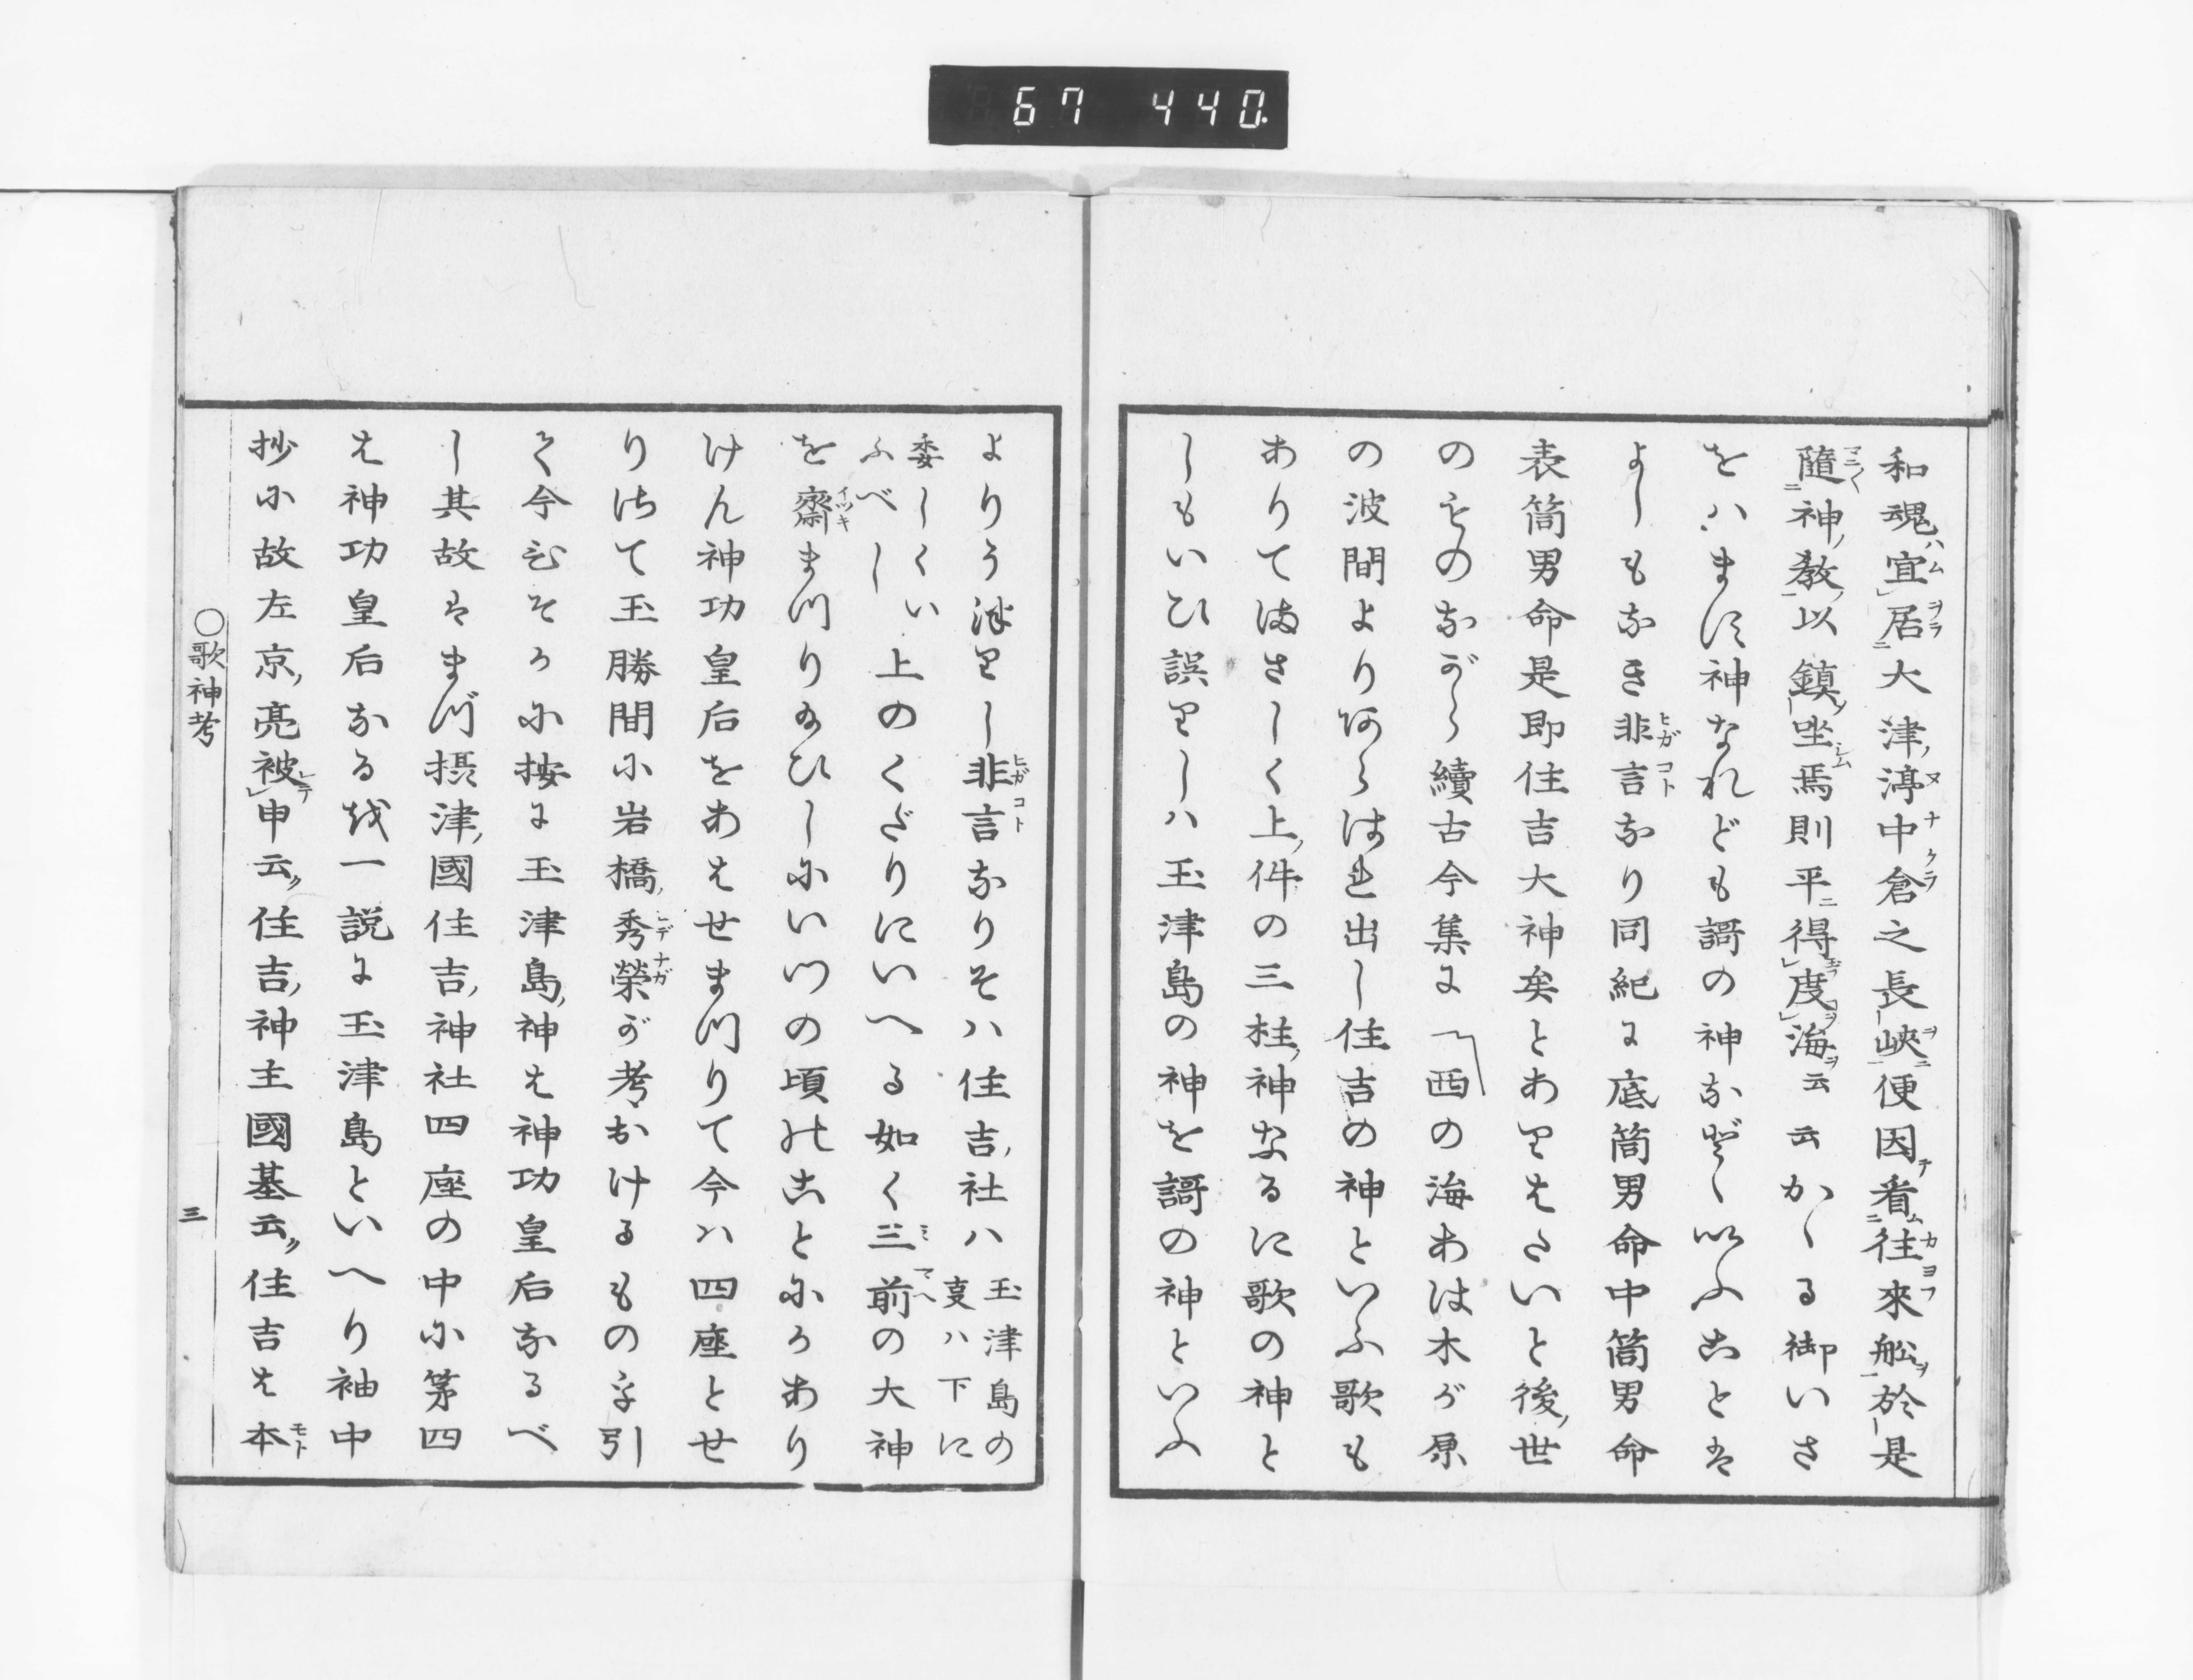 67 440.
和魂宜居大津渟中倉之長峽便因看往來船於是
隨神教以鎮坐焉則平得度海云云かゝる御いさ
をハます神なれども謌の神などゝいふことは
よしもなき非言なり同紀に底筒男命中筒男命
表筒男命是即住吉大神矣とあり
のものながら續古今集に西の海あは木が原
の波間よりあらはれ出し住吉の神といふ歌も
ありてまさしく上件の三柱神なるに歌の神と
しもいひ誤りしハ玉津島の神を謌の神といふ
よりうつりし非言なりそハ住吉社ハ玉津島の
叓ハ下に
委しくい
ふべし上のくだりにいへる如く三前の大神
を齋まつり給ひしにいつの頃のことにかあり
けん神功皇后をあはせまつりて今ハ四座とせ
りさて玉勝間に岩橋秀榮が考おけるものを引
て今むそかに按に玉津島神は神功皇后なるべ
し其故はまづ摂津國住吉神社四座の中に第四
は神功皇后なるを一説に玉津島といへり袖中
抄に故左京亮被申云住吉神主國基云住吉は本
○歌神考
三